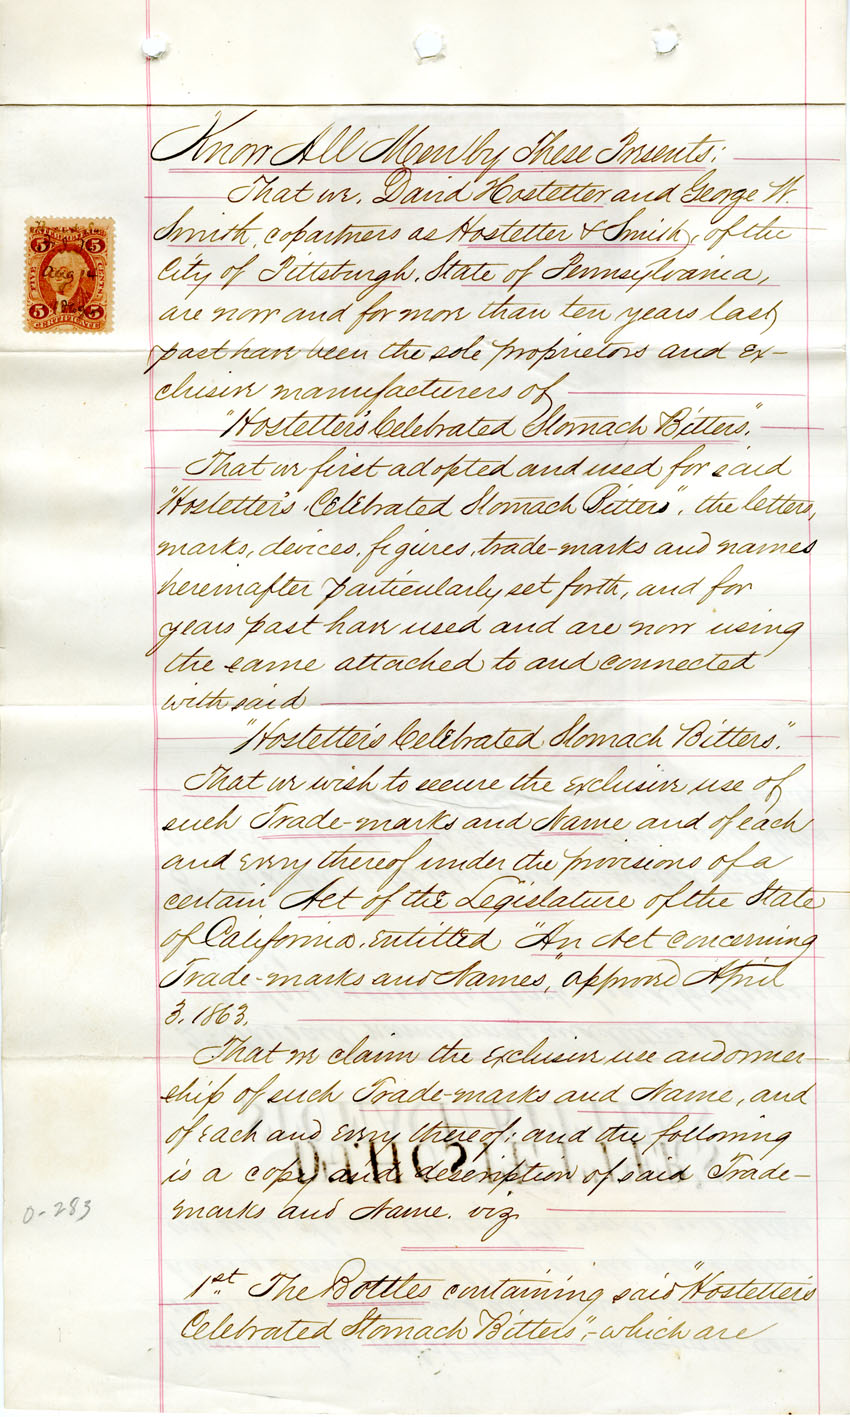 Know All Men by These Presents:
That we, David Hostetter and George W.
Smith, copartners as Hostetter & Smith, of the
City of Pittsburgh, State of Pennsylvania,
are now and for more than ten years last
past have been the sole proprietors and ex-
clusive manufacturers of
"Hostetter's Celebrated Stomach Bitters".
That we first adopted and used for said
"Hostetter's Celebrated Stomach Bitters", the letters,
marks, devices, figures, trade-marks and names
hereinafter particularly set forth, and for
years past have used and are now using
the same attached to and connected
with said
"Hostetter's Celebrated Stomach Bitters".
That we wish to secure the exclusive use of
such Trade-marks and Name and of each
and every thereof under the provisions of a
certain Act of the Legislature of the State
of California, entitled "An Act concerning
Trade-marks and Names," approved April
3. 1863.
That we claim the exclusive use and owner-
ship of such Trade-marks and Name, and
of each and every thereof; and the following
is a copy and description of said Trade-
marks and Name. viz
1st. The Bottles containing said "Hostetter's
Celebrated Stomach Bitters",- which are
5 5
FIVE CENTS
Aug 14
5 5
CERTIFICATE
0-283